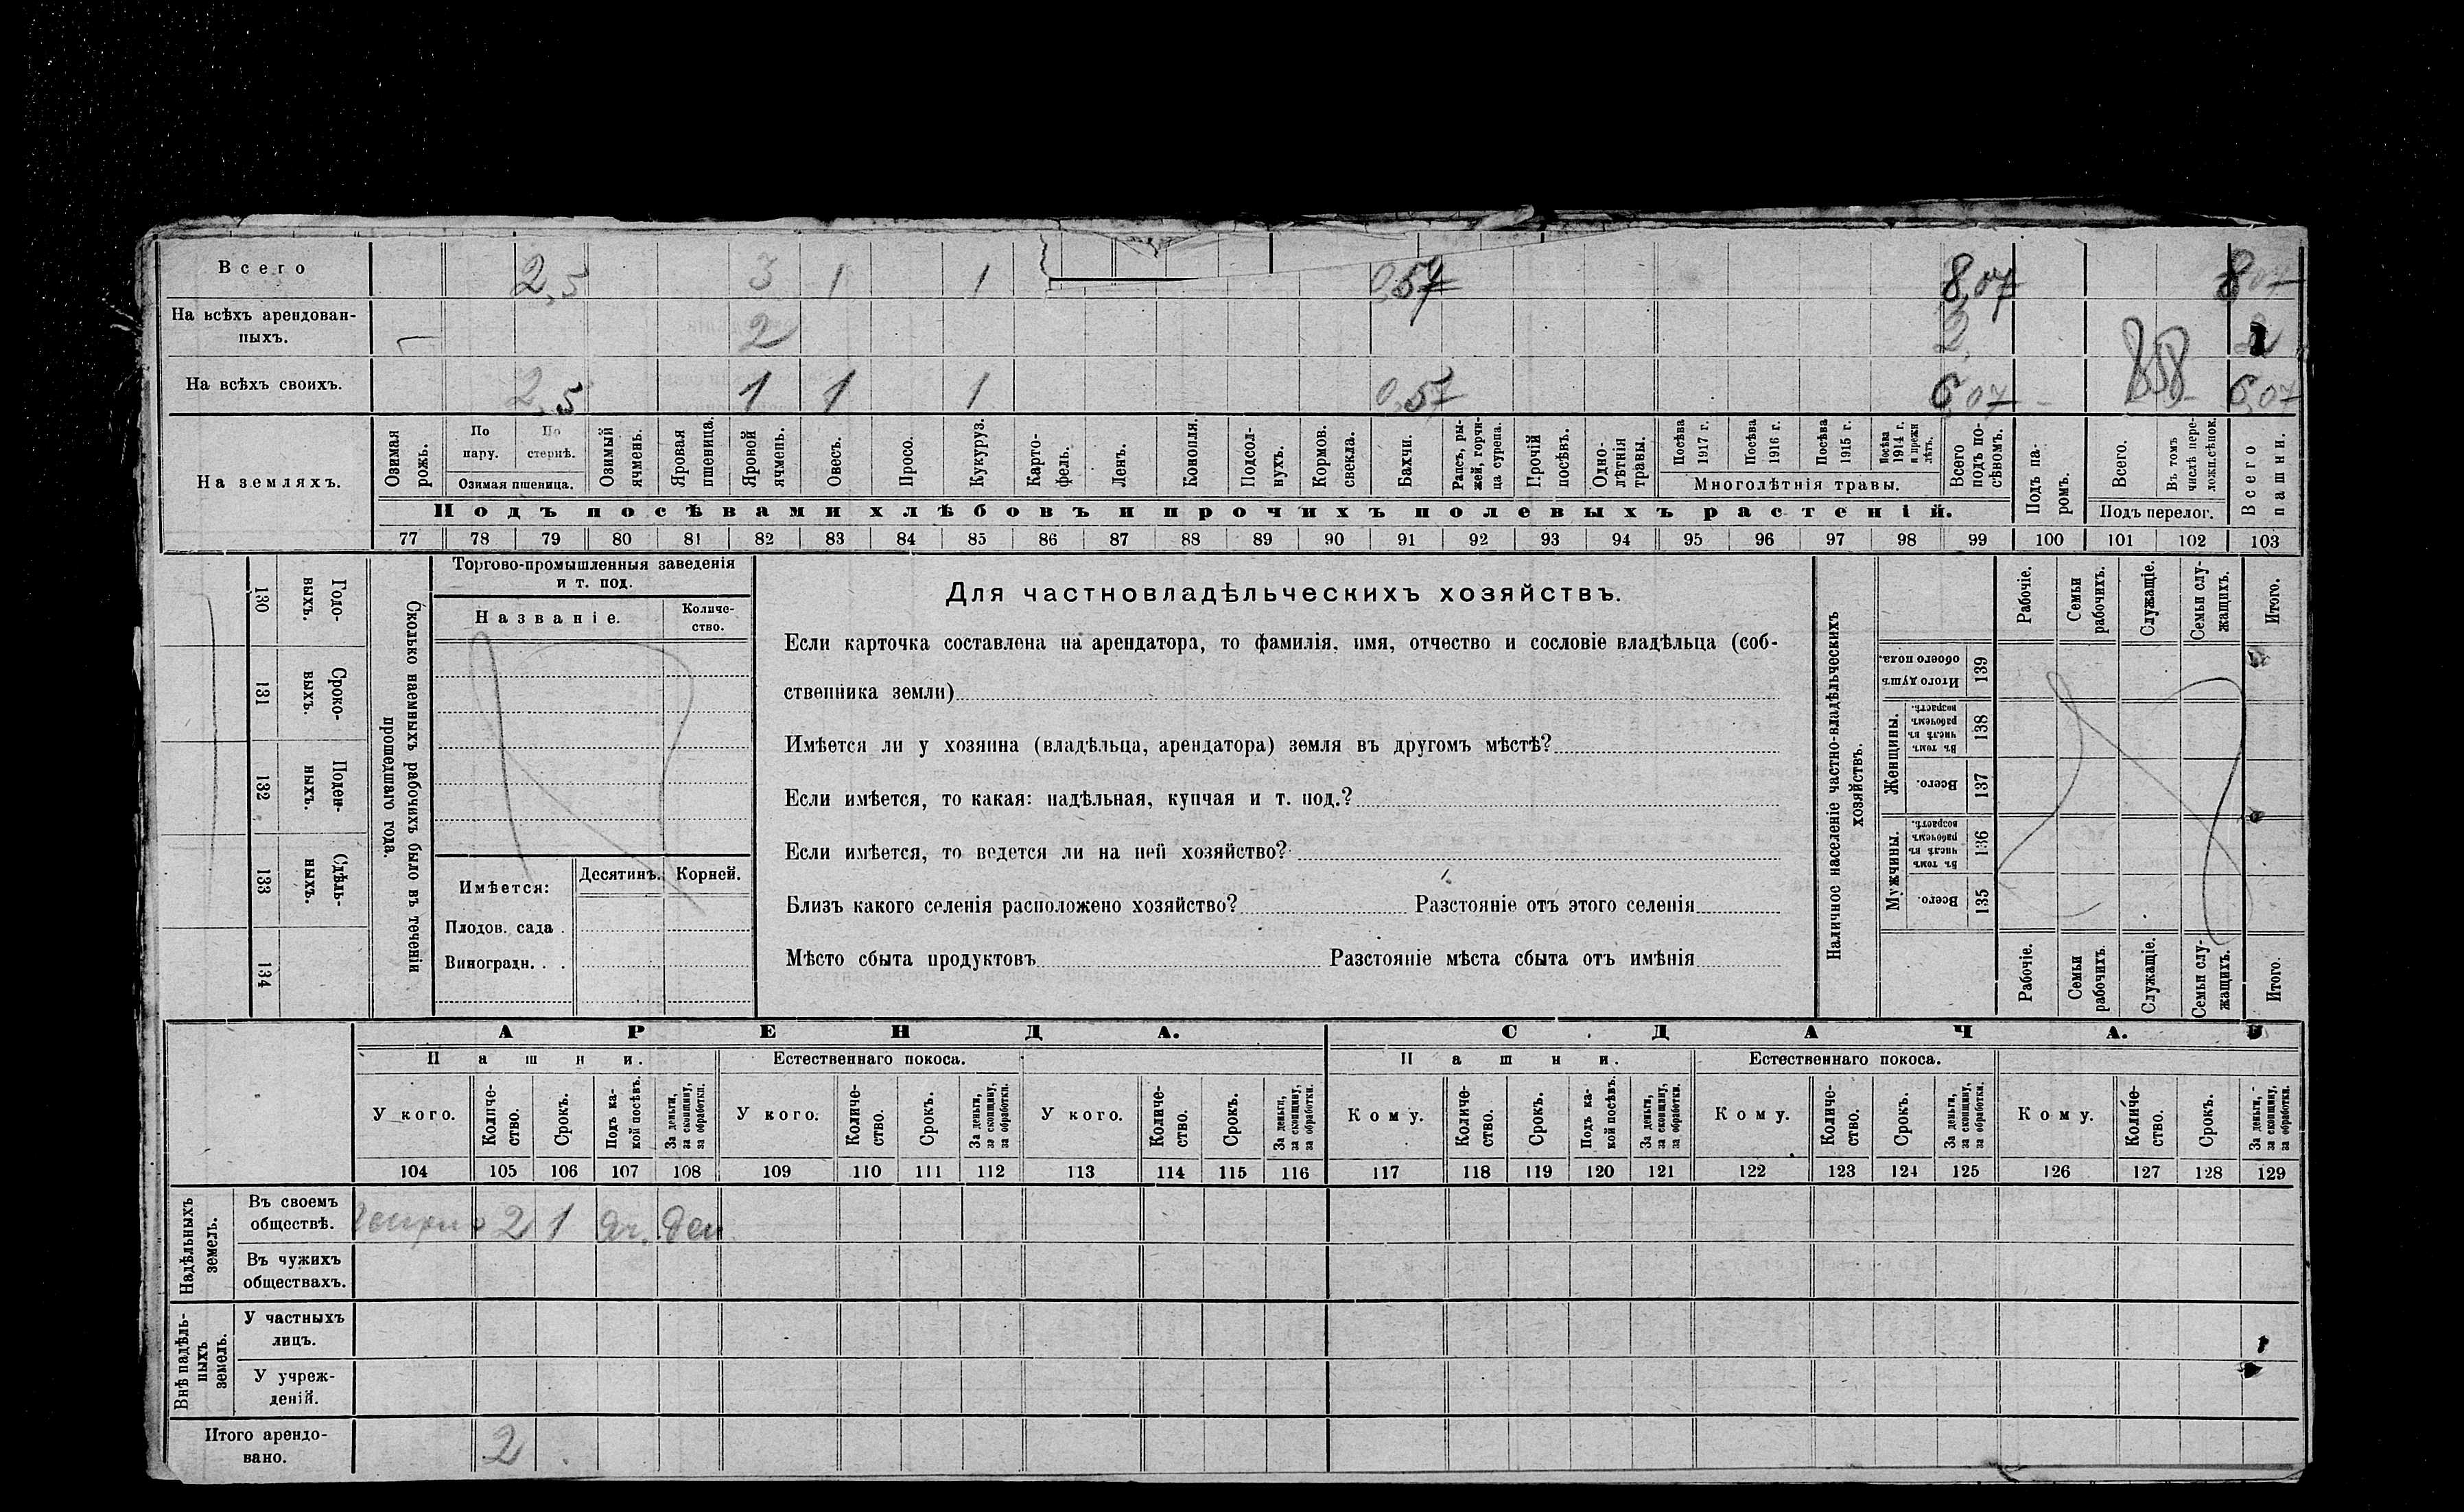 Всего 2,5 3 1 1 0,57 8,07 8,07
На всѣхъ арендован-
ныхъ. 2 2, 2
На всѣхъ своихъ. 2,5 1 1 1 0,57 6,07 6,07
На земляхъ.
Озимая рожь.
По пару.
По стернѣ.
Озимая пшеница.
Озимый ячмень.
Яровая пшеница.
Яровой ячмень.
Овесъ.
Просо.
Кукуруз.
Карто-
фель.
Ленъ.
Конопля.
Подсол-
нухъ.
Кормов. свекла.
Бахчи.
Рапсъ, ры-
жей, горчи-
ца сурепа.
Прочій посѣвъ.
Одно-
лѣтнія травы.
Посѣва 1917 г.
Посѣва 1916 г.
Посѣва 1915 г.
Посѣва 1914 г. и прежн лѣтъ.
Многолѣтнія травы.
Всего подъ по-
сѣвомъ.
Подъ па-
ромъ.
Всего.
Въ томъ числѣ пере-
ложн.сѣнок.
Подъ перелог.
Всего пашни.
Подъ посѣвами хлѣбовъ и прочихъ полевыхъ растеній.
77 78 79 80 81 82 83 84 85 86 87 88 89 90 91 92 93 94 95 96 97 98 99 100 101 102 103
130 Годо-
выхъ.
131 Сроко-
выхъ.
132 Поден-
ныхъ.
133 Сдѣль-
ныхъ.
134
Сколько наемныхъ рабочихъ было въ теченіи
прошедшаго года.
Торгово-промышленныя заведенія
и т. под.
Названіе.
Количе-
ство.
Имѣется: Десятинъ. Корней.
Плодов. сада .
Виноградн. . .
Для частновладѣльческихъ хозяйствъ.
Если карточка составлена на арендатора, то фамилія, имя, отчество и сословіе владѣльца (соб-
ственника земли)
Имѣется ли у хозяина (владѣльца, арендатора) земля въ другомъ мѣстѣ?
Если имѣется, то какая: надѣльная, купчая и т. под.?
Если имѣется, то ведется ли на ней хозяйство?
Близъ какого селенія расположено хозяйство? Разстояніе отъ этого селенія
Мѣсто сбыта продуктовъ Разстояніе мѣста сбыта отъ имѣнія
Наличное населеніе частно-владѣльческихъ
хозяйствъ.
Рабочіе.
Семьи рабочихъ.
Служащіе.
Семьи слу-
жащихъ.
Итого.
Итого душъ обоего пола. 139
Женщины.
Въ томъ числѣ въ рабочемъ возрастѣ. 138
Всего. 137
Мужчины.
Въ томъ числѣ въ рабочемъ возрастѣ. 136
Всего. 135
Рабочіе.
Семьи рабочихъ.
Служащіе.
Семьи слу-
жащихъ.
Итого.
АРЕНДА. СДАЧА.
Пашни. Естественнаго покоса. Пашни. Естественнаго покоса.
У кого. Количе-
ство. Срокъ. Подъ ка-
кой посѣвъ. За деньги, за скопщину, за обработки.
У кого. Количе-
ство. Срокъ. За деньги, за скопщину, за обработки.
У кого. Количе-
ство. Срокъ. За деньги, за скопщину, за обработки.
Кому. Количе-
ство. Срокъ. Подъ ка-
кой посѣвъ. За деньги, за скопщину, за обработки.
Кому. Количе-
ство. Срокъ. За деньги, за скопщину, за обработки.
Кому. Количе-
ство. Срокъ. За деньги, за скопщину, за обработки.
104 105 106 107 108 109 110 111 112 113 114 115 116 117 118 119 120 121 122 123 124 125 126 127 128 129
Надѣльныхъ земель.
Въ своемъ
обществѣ. 2 1 яч. ден
Въ чужихъ
обществахъ.
Внѣ надѣль-
ныхъ земель.
У частныхъ
лицъ.
У учреж-
деній.
Итого арендо-
вано. 2